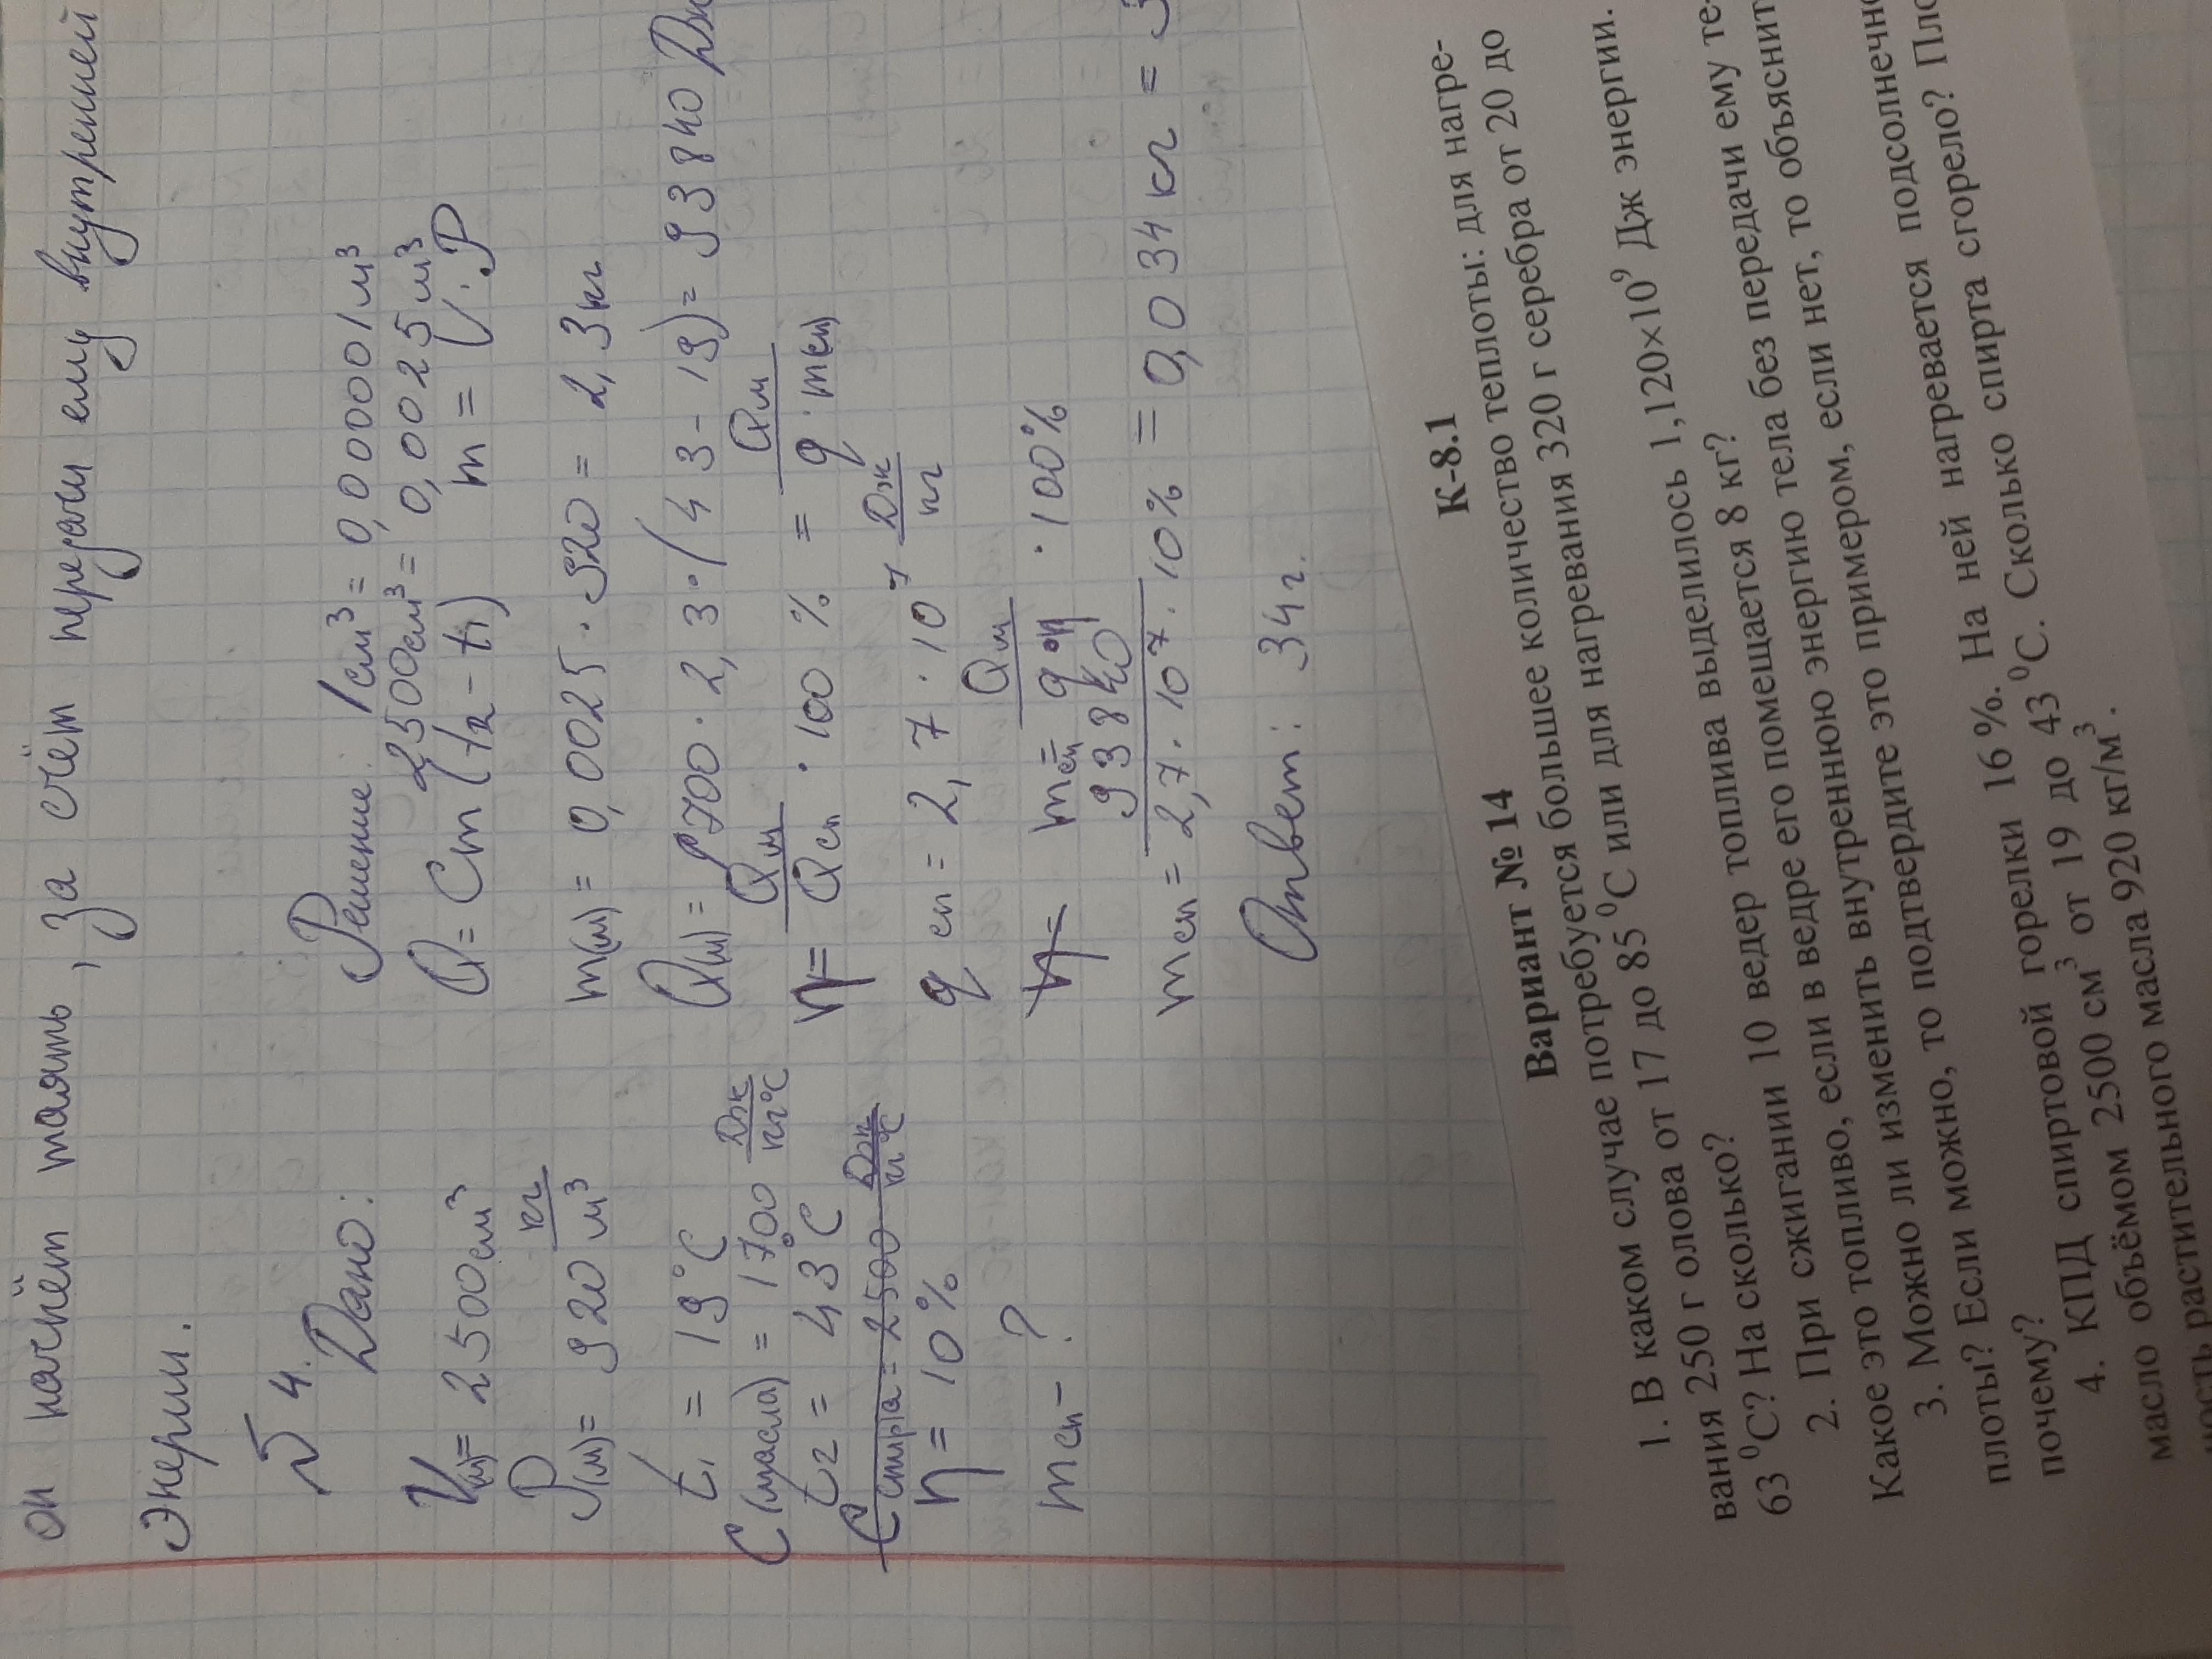 он начнёт таять, за счёт передачи ему внутренней
энергии.
№ 4.
Дано:
V(м)= 2500см³
P(м)= 920 кг/м³
t₁ = 19°C
C(масла) = 1700 Дж/кг°C
t₂ = 43°C
C спирта = 2500 Дж/кг°C
η = 10%
mсп - ?
Решение: 1см³ = 0,000001м³
2500см³ = 0,0025м³
Q = Cm (t₂ - t₁) m = V·P
m(м) = 0,0025 · 920 = 2,3кг
Q(м) = 1700 · 2,3 · (43-19) = 93840 Дж
η = Qм/Qсп · 100 % = Qм/q·m(сп)
qсп = 2,7 · 10⁷ Дж/кг
η mсп = Qм/qη · 100%
mсп = 93840/2,7·10⁷·10% = 0,034кг =
Ответ: 34г.
Вариант № 14 К-8.1
1. В каком случае потребуется большее количество теплоты: для нагре-
вания 250 г олова от 17 до 85 ⁰С или для нагревания 320 г серебра от 20 до
63 ⁰С? На сколько?
2. При сжигании 10 ведер топлива выделилось 1,120×10⁹ Дж энергии.
Какое это топливо, если в ведре его помещается 8 кг?
3. Можно ли изменить внутреннюю энергию тела без передачи ему те-
плоты? Если можно, то подтвердите это примером, если нет, то объяснит
почему?
4. КПД спиртовой горелки 16 %. На ней нагревается подсолнечно
масло объёмом 2500 см³ от 19 до 43 ⁰С. Сколько спирта сгорело? Пло
ность растительного масла 920 кг/м³.